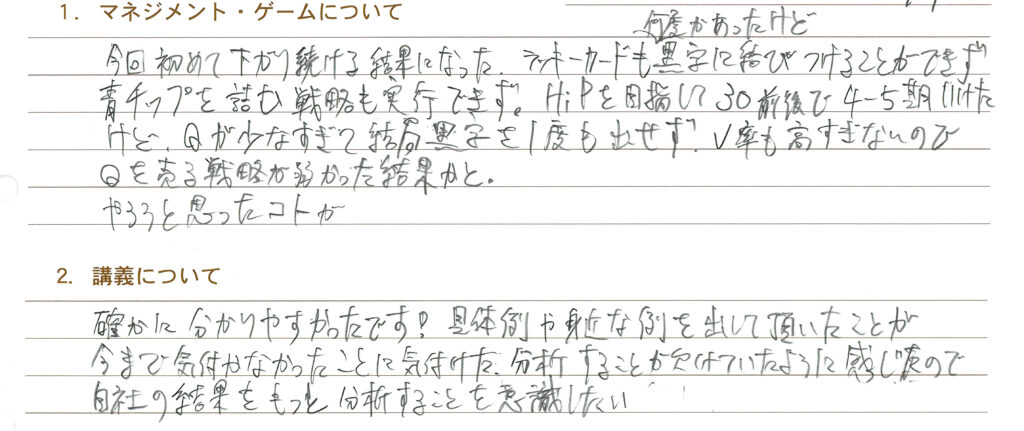 1. マネジメント・ゲームについて
何度かあったけど
今回初めて下がり続ける結果になった。ラッキーカードも黒字に結びつけることができず
青チップを詰む戦略も実行できず。HiPを目指して30前後で4-5期いけた
けど、Qが少なすぎて結局黒字を1度も出せず。V率も高すぎないので
Qを売る戦略が弱かった結果かと。
やろうと思ったコトが
2. 講義について
確かに分かりやすかったです!具体例や身近な例を出して頂いたことが
今まで気付かなかったことに気付けた。分析することが欠けていたように感じ
ので
自社の結果をもっと分析することを意識したい